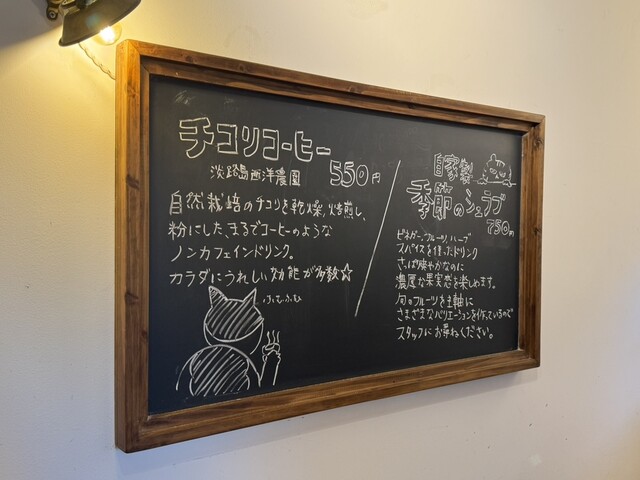 チコリコーヒー
淡路島西洋農園 550円
自然栽培のチコリを乾燥、焙煎し、
粉にした、まるでコーヒーのような
ノンカフェインドリンク。
カラダにうれしい効能が多数☆
自家製
季節のシュラブ
750円
ビネガー、フルーツ、ハーブ
スパイスを使ったドリンク
さっぱり爽やかなのに
濃厚な果実感を楽しめます。
旬のフルーツを主軸に
さまざまなバリエーションを作っているので
スタッフにお尋ねください。